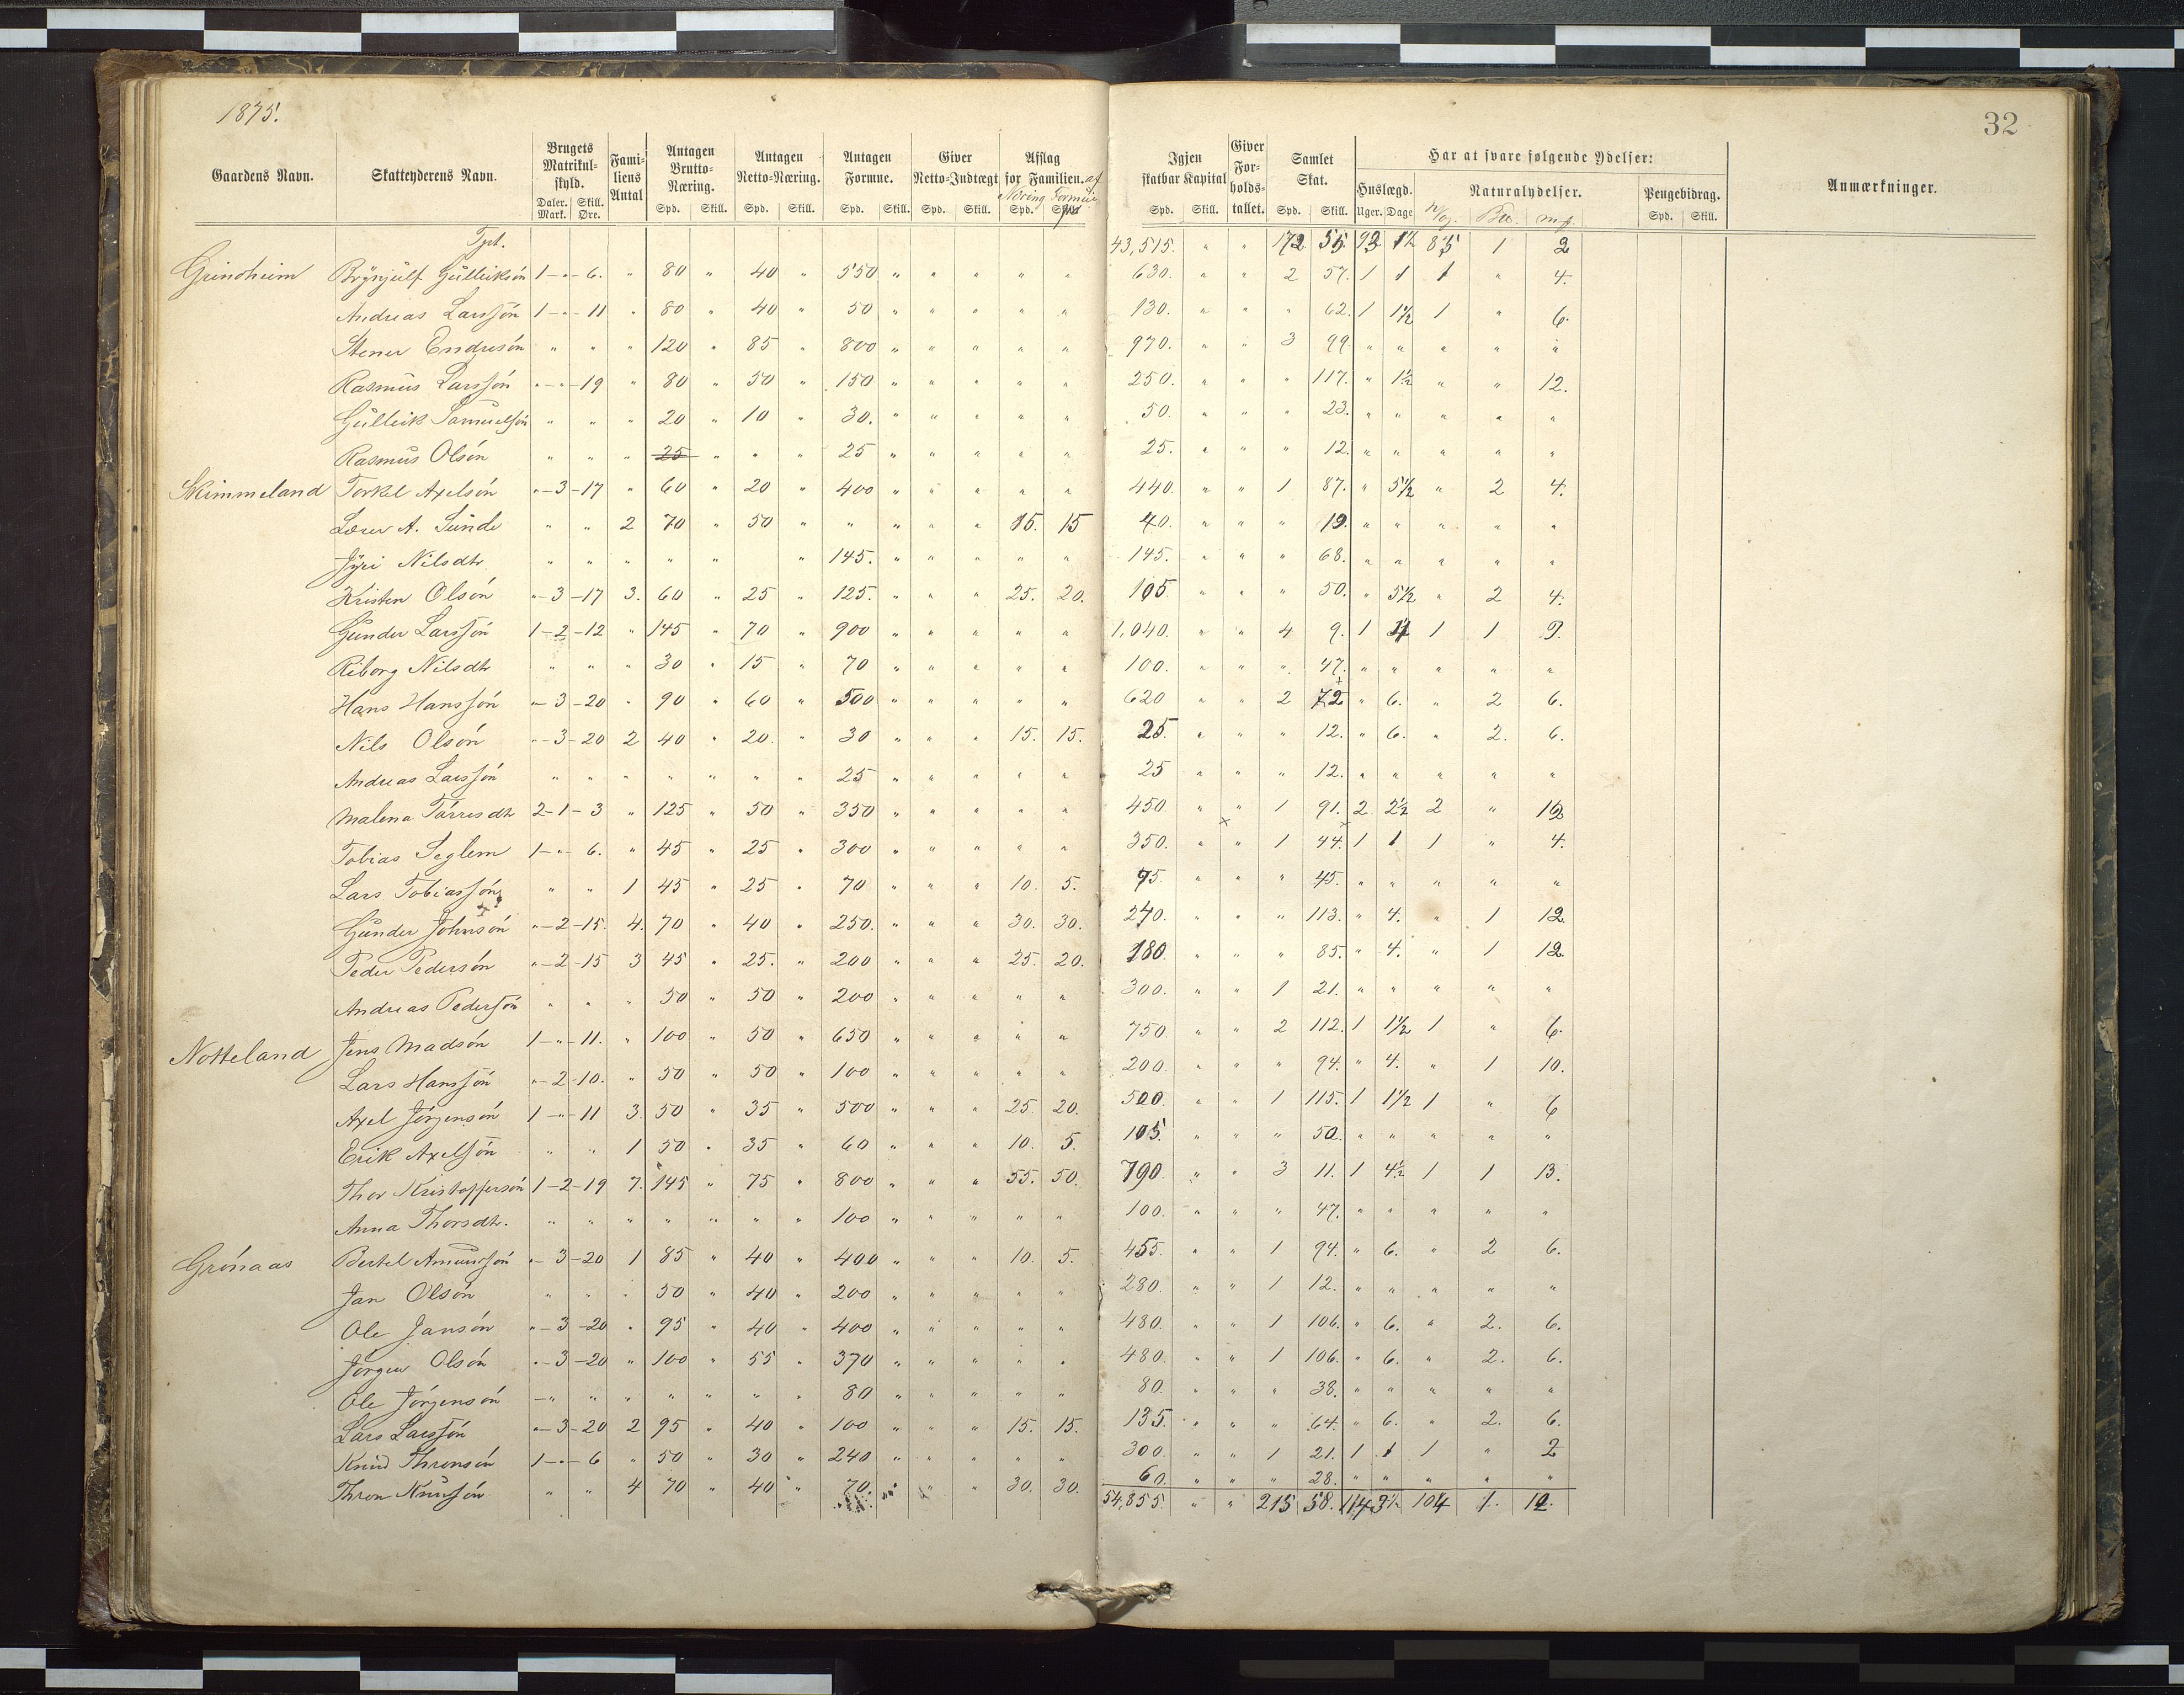 1875.
32
Gaardens Navn. Skatteyderens Navn. Brugets Matrikul-skyld. Fami-liens Antal Antagen Brutto-Næring. Antagen Netto-Næring. Antagen Formue. Giver Netto-Indtægt Afslag for Familien. af Igjen skatbar Kapital Giver For-holds-tallet. Samlet Skat. Har at svare følgende Ydelser: Anmærkninger.
Huslægd. Naturalydelser. Pengebidrag.
Daler. Mark. Skill. Øre. Spd. Skill. Spd. Skill. Spd. Skill. Spd. Skill. Næring Spd. Formue Spd. Skill. Spd. Skill. Uger. Dage Bu. Spd. Skill.
Tpt. 43,515. " " 172 55 93 85 1 2
Grindheim Brynjulf Gulleiksön 1 - " - 6. " 80 " 40 " 550 " " " " " 630. " " 2 57. 1 1 1 " 4.
Andreas Larssön 1 - " - 11 " 80 " 40 " 50 " " " " " 130. " " " 62. 1 1½ 1 " 6.
Stener Endresön " " " 120 " 85 " 800 " " " " " 970. " " 3 99. " " " " "
Rasmus Larssön " - " - 19 " 80 " 50 " 150 " " " " " 250. " " " 117. " 1½ " " 12.
Gulleik Samuelsön " " " 20 " 10 " 30. " " " " " 50. " " " 23. " " " " "
Rasmus Olsön " " " 25 " " " 25 " " " " " 25. " " " 12. " " " " "
Skimmeland Torkel Axelsön " - 3 - 17 " 60 " 20 " 400 " " " " " 440. " " 1 87. " 5½ " 2 4.
Lærer A. Sunde " " 2 70 " 50 " " " " " 15. 15 40. " " " 19. " " " " "
Jyri Nilsdtr " " " " " " " 145. " " " " " 145. " " " 68. " " " " "
Kristen Olsön " - 3 - 17 3. 60 " 25 " 125. " " " 25. 20. 105. " " " 50. " 5½ " 2 4.
Gunder Larssön 1 - 2 - 12 " 145 " 70 " 900 " " " " " 1,040. " " 4 9. 1 4 1 1 9.
Riborg Nilsdtr " " " 30 " 15 " 70 " " " " " 100. " " " 47. " " " " "
Hans Hanssön " - 3 - 20 " 90 " 60 " 500 " " " " " 620 " " 2 72 " 6. " 2 6.
Nils Olsön " - 3 - 20 2 40 " 20. " 30 " " " 15. 15. 25. " " " 12. " 6. " 2. 6.
Andreas Larssön " " " " " " " 25 " " " " " 25 " " " 12. " " " " "
Malena Tarresdtr 2 - 1 - 3 " 125 " 50 " 350 " " " " " 450 " " 1 91. 2 2½ 2 " 12
Tobias Seglem 1 - " - 6. " 45 " 25 " 300 " " " " " 350. " " 1 44. 1 1 1 " 4.
Lars Tobiassön " " 1 45 " 25 " 70 " " " 10. 5. 95. " " " 45. " " " " "
Gunder Johnsön " - 2 - 15. 4. 70 " 40 " 250. " " " 30. 30. 240. " " " 113. " 4. " 1 12.
Peder Pedersön " - 2 - 15 3 45 " 25. " 200 " " " 25. 20. 180. " " " 85. " 4. " 1 12.
Andreas Pedersön " " " 50 " 50 " 200 " " " " " 300. " " 1 21. " " " " "
Notteland Jens Madsön 1 - " - 11. " 100 " 50 " 650 " " " " " 750. " " 2 112. 1 1½ 1 " 6.
Lars Hanssön " - 2 - 10. " 50 " 50 " 100 " " " " " 200. " " " 94. " 4. " 1 10.
Axel Jörgensön 1 - " - 11 3. 50 " 35 " 500 " " " 25. 20. 500. " " 1 115. 1 1½ 1 " 6
Erik Axelsön " " 1 50 " 35 " 60 " " " 10. 5. 105. " " " 50. " " " " "
Thor Kristoffersön 1 - 2 - 19 7. 145 " 75 " 800 " " " 55. 50. 790. " " 3 11. 1 4½ 1 1 13.
Anna Thorsdtr. " " " " " " " 100 " " " " " 100. " " " 47. " " " " "
Grönaas Bertel Amundsön " - 3 - 20 1 85 " 40 " 400 " " " 10. 5. 455. " " 1 94. " 6. " 2 6.
Jan Olsön " " " 50 " 40 " 200 " " " " " 280. " " 1 12. " " " " "
Ole Jansön " - 3 - 20 " 95 " 40 " 400 " " " " " 480. " " 1 106. " 6. " 2. 6.
Jörgen Olsön " - 3 - 20 " 100 " 55 " 370 " " " " " 480. " " 1 106. " 6. " 2. 6.
Ole Jörgensön " " " " " " " 80 " " " " " 80. " " " 38. " " " " "
Lars Larssön " - 3 - 20 2 95 " 40 " 100 " " " 15. 15. 135. " " " 64. " 6. " 2. 6.
Knud Thronsön 1 - " - 6 " 50 " 30 " 240 " " " " " 300. " " 1 21. 1 1 1 " 2
Thron Knudsön " " 4 70 " 40 " 70. " " " 30. 30. 60. " " " 28. " " " " "
54,855. " " 215 58. 114 3½ 104 1. 12.